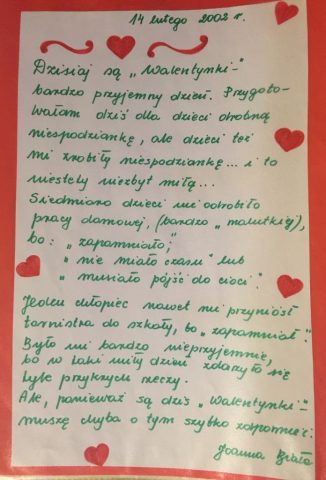 14 lutego 2002 r.
Dzisiaj są „Walentynki" -
bardzo przyjemny dzień. Przygoto-
wałam dziś dla dzieci drobną
niespodziankę, ale dzieci też
mi zrobiły niespodziankę... i to
niestety niezbyt miłą...
Siedmioro dzieci nie odrobiło
pracy domowej, (bardzo „malutkiej),
bo: „zapomniało",
„nie miało czasu" lub
„musiało pójść do cioci".
Jeden chłopiec nawet nie przyniósł
tornistra do szkoły, bo „zapomniał".
Było mi bardzo nieprzyjemnie,
bo w taki miły dzień zdarzyło się
tyle przykrych rzeczy.
Ale, ponieważ są dziś „Walentynki" -
muszę chyba o tym szybko zapomnieć.
Joanna